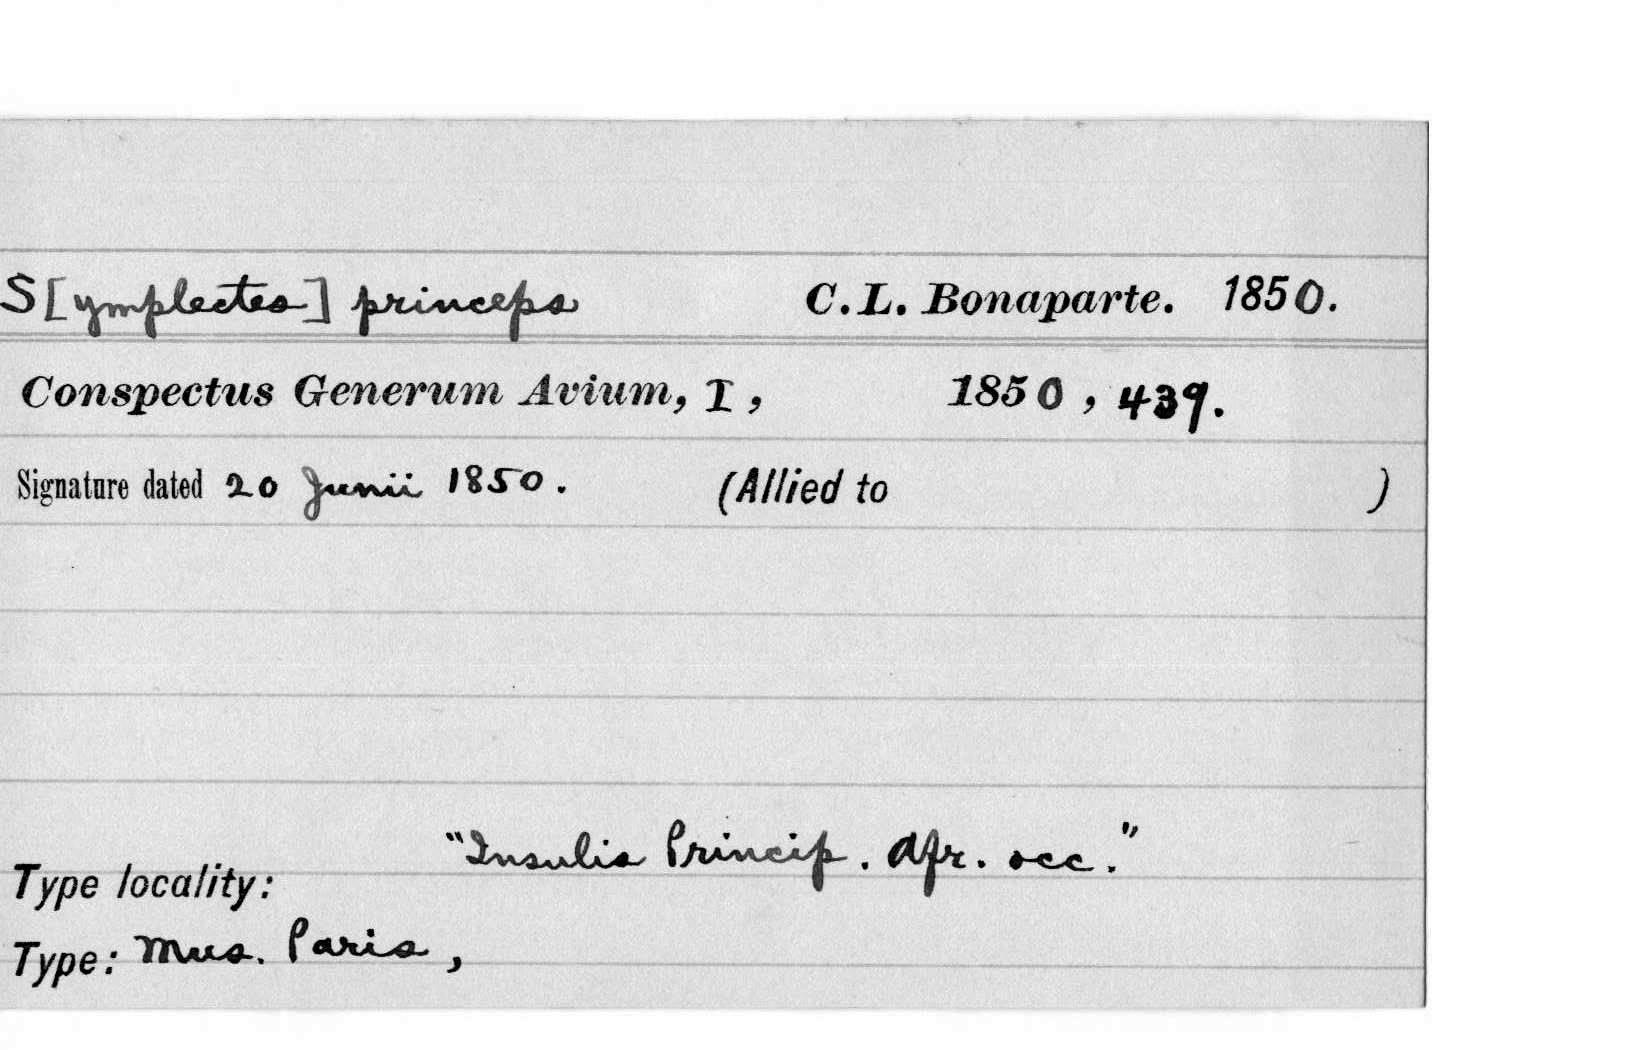 S[ymplectes] princeps C.L. Bonaparte. 1850.
Conspectus Generum Avium, I, 1850, 439.
Signature dated 20 Junii 1850. (Allied to )
"Insulis Princip. Afr. occ."
Type locality:
Type: Mus. Paris,